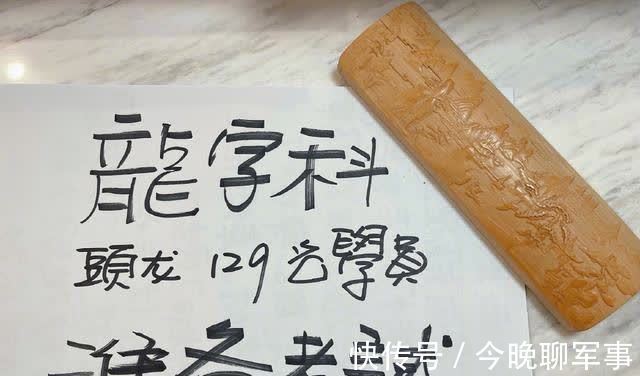 龍字科
頭龙 129 名學員
准备考試
快传号 / 今晚聊军事